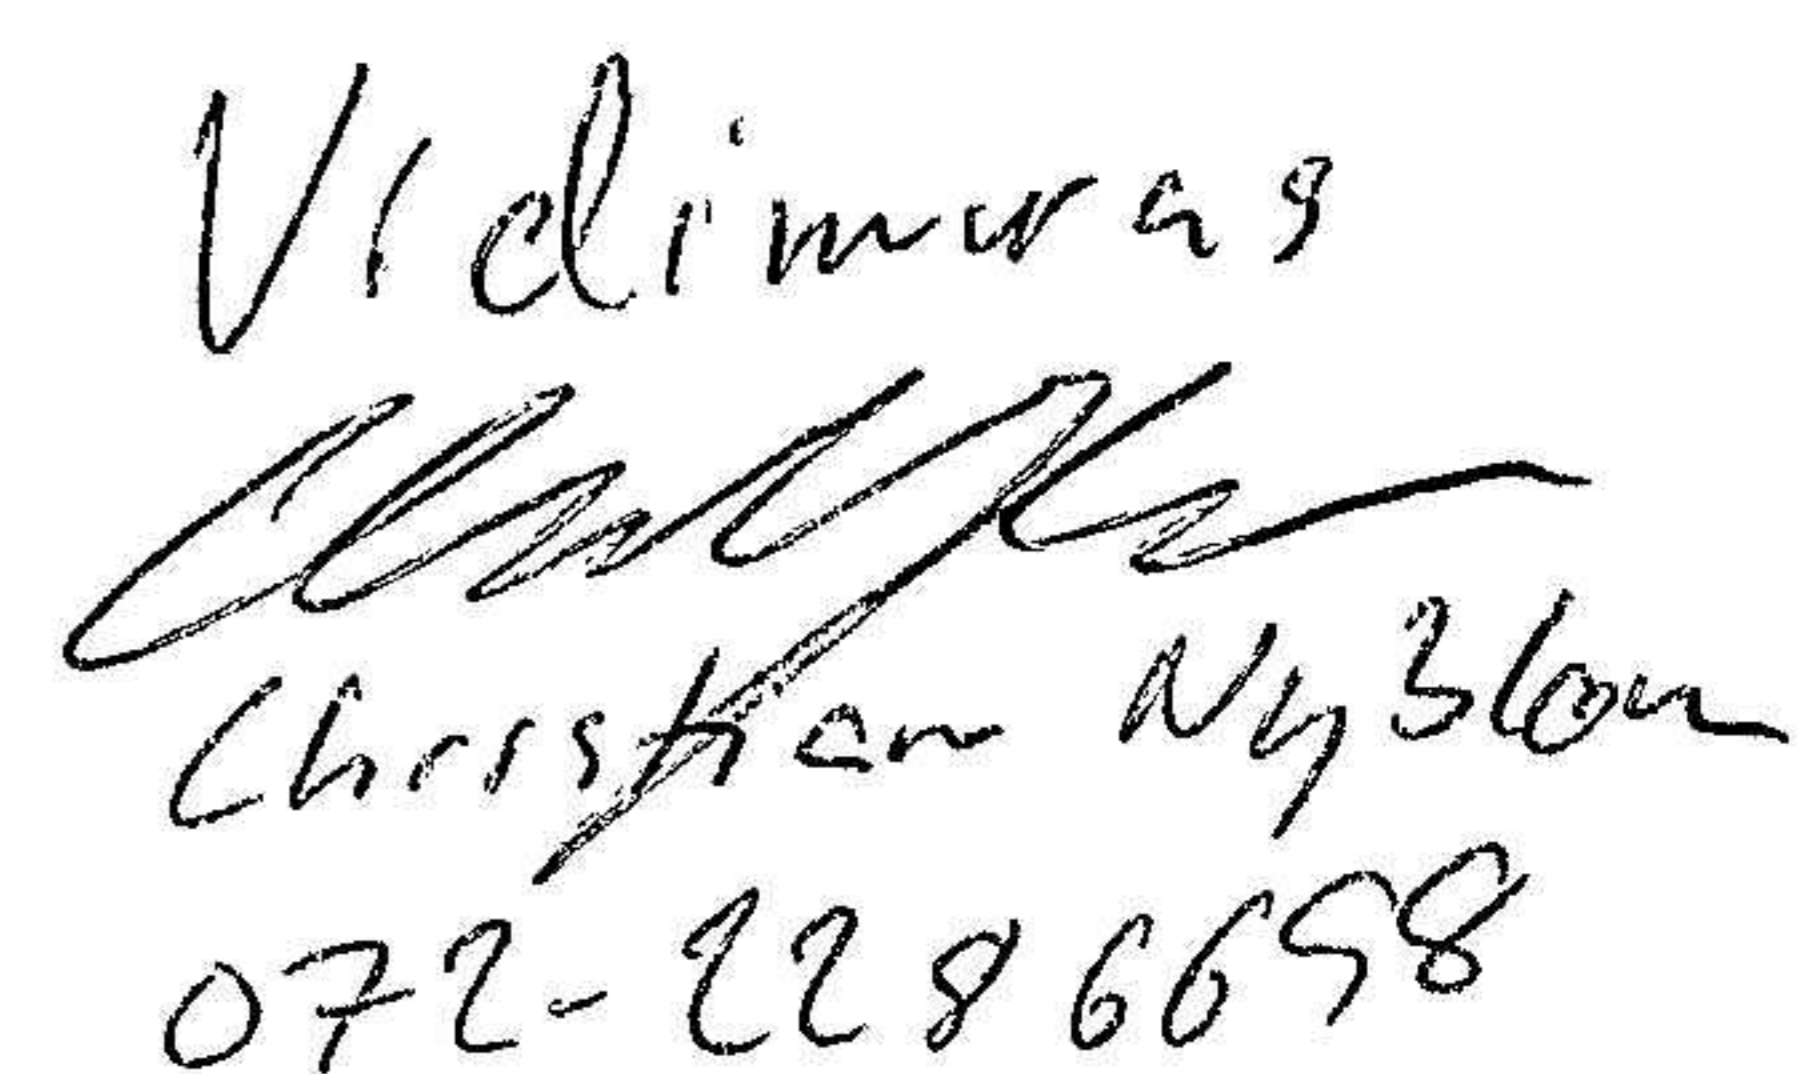 Vidimeras
Christian Nyblom
072-228 66 98